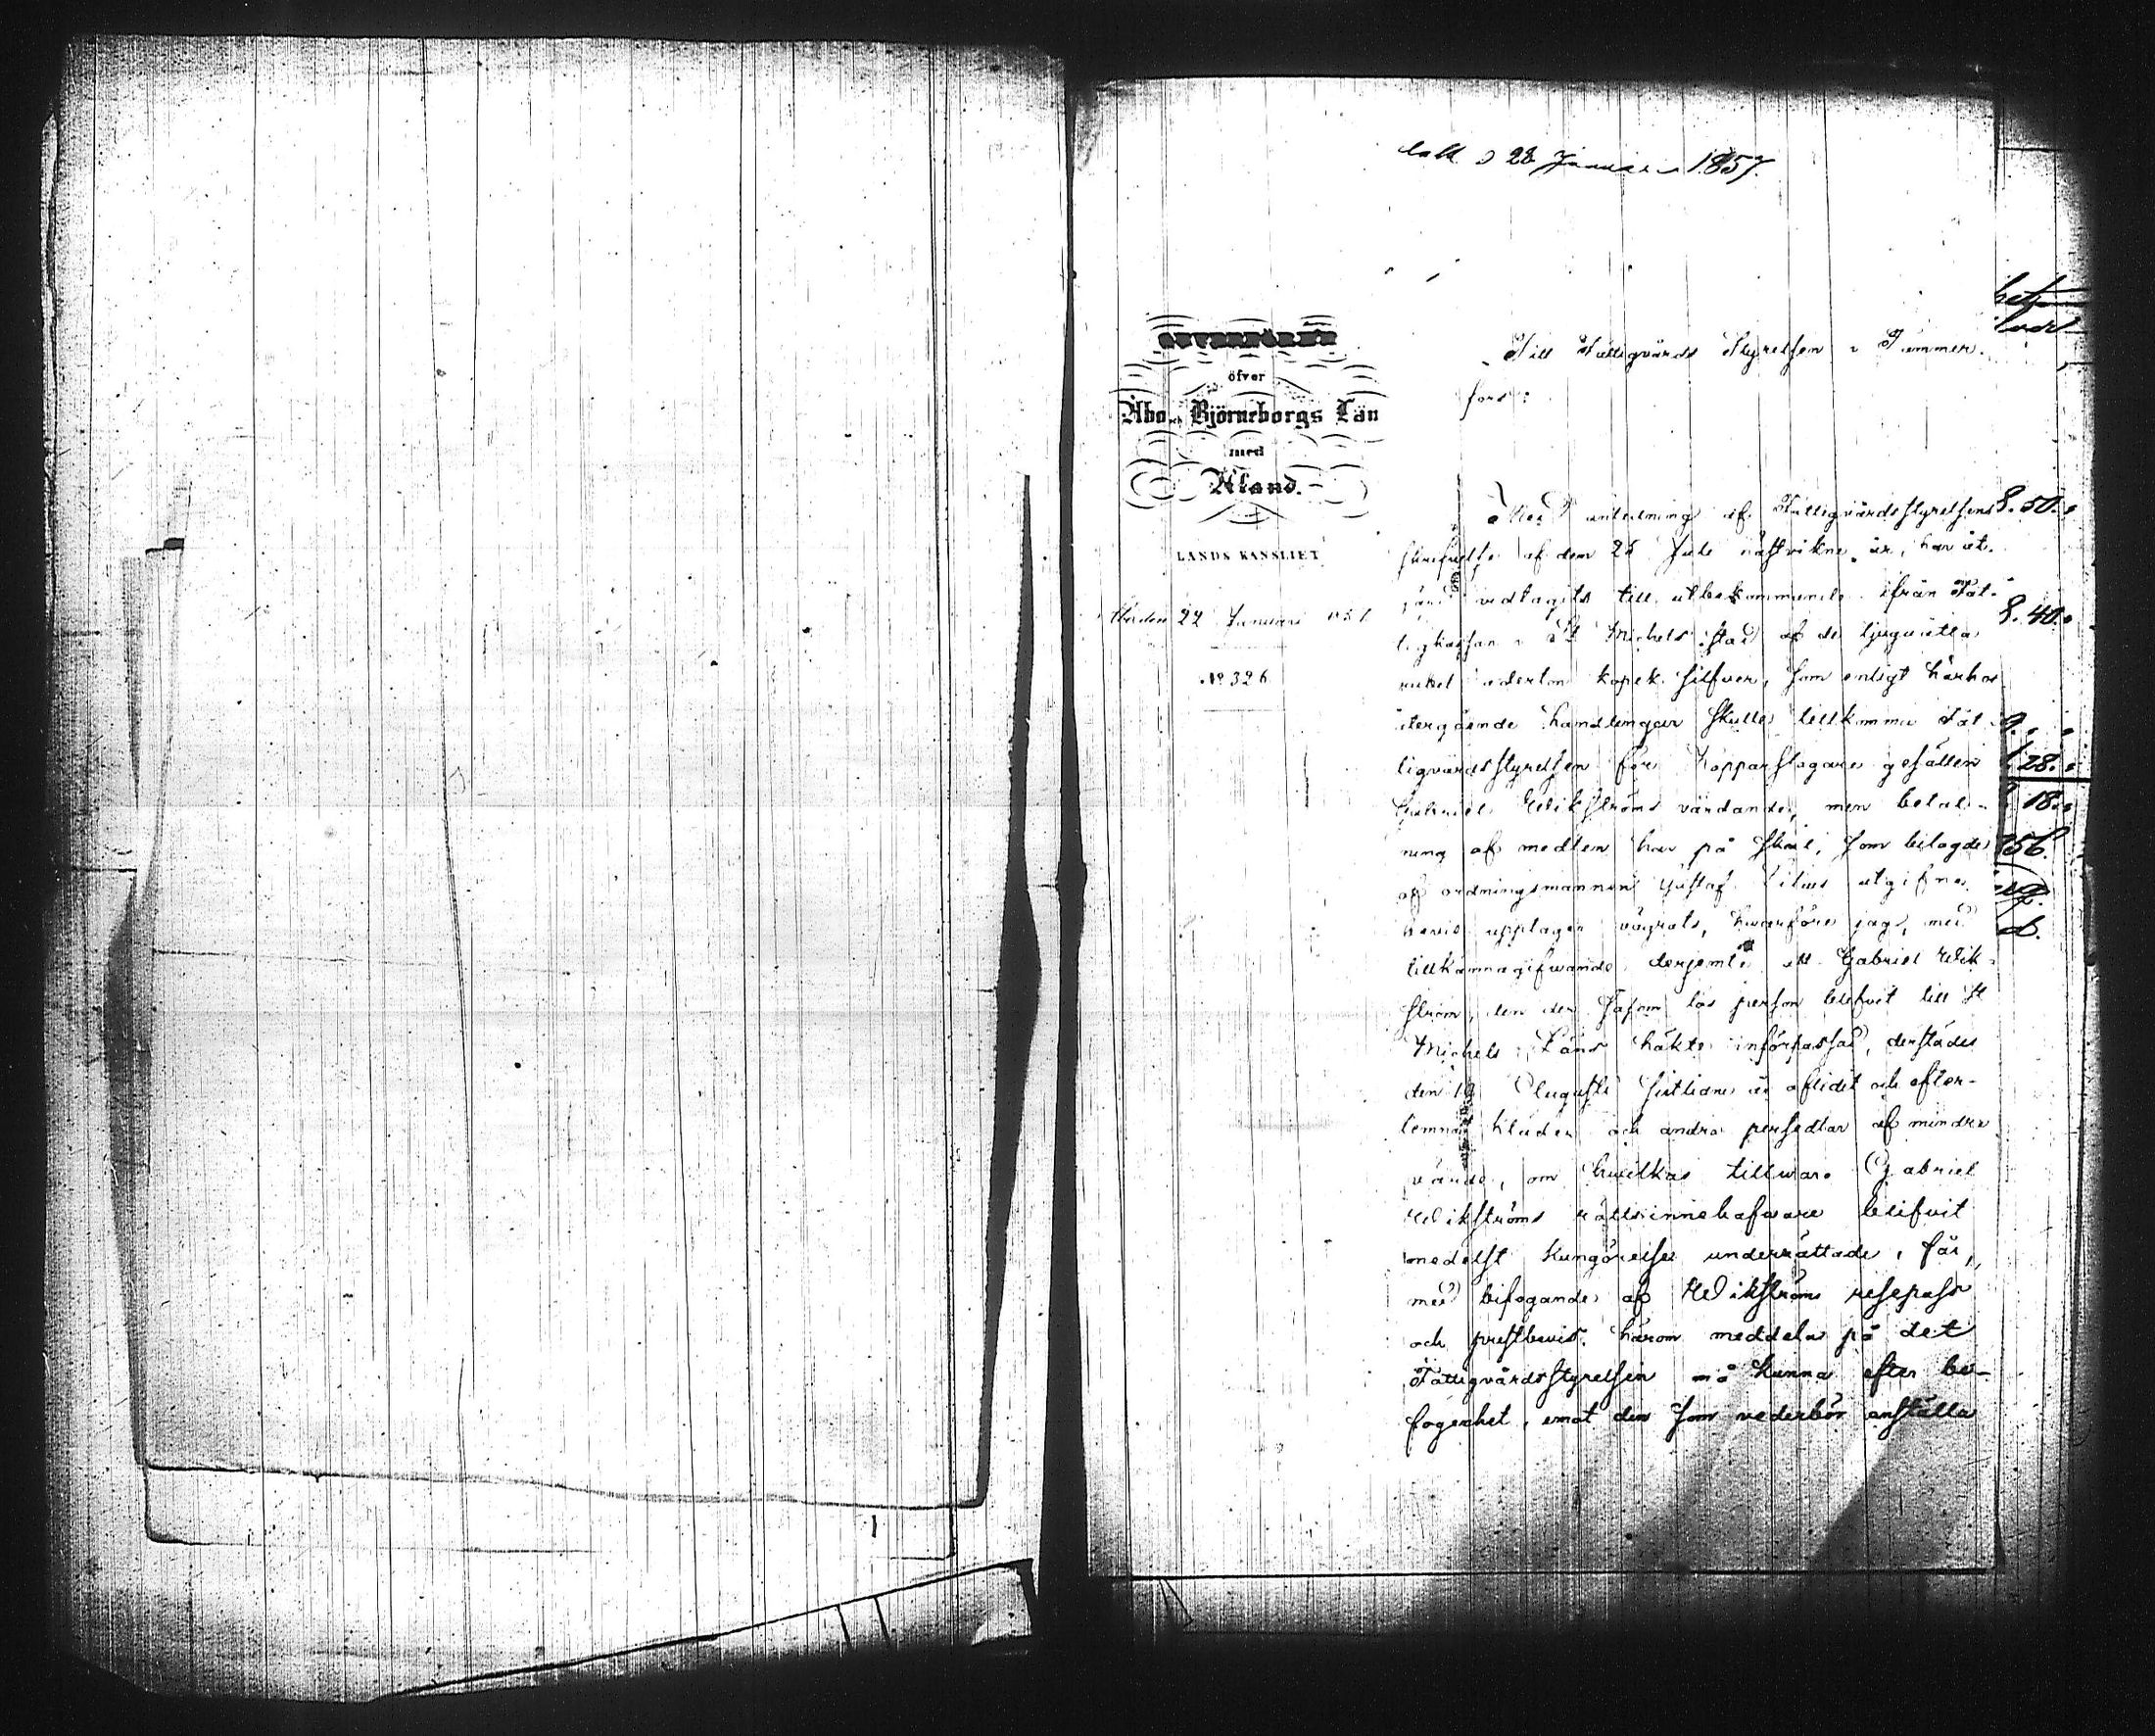 d 28 Januari 1857.
GUVERNÖREN
öfver
Åbo och Björneborgs Län
med
Åland.
LANDS KANSLIET
Åbo den 22 Januari 1857
№ 326
Till Fattigvårds Styrelsen i Tammer-
fors:
Med anledning af Fattigvårdsstyrelsens
skrifvelse af dem 25 Juli nästvikne år, har åt-
gärd vidtagits till utbekommande ifrån Fat-
tigkassan i St Michels stad af de tjuguåtta
rubel aderton kopek silfver, som enligt härhos
återgående handlingar skulle tillkomma Fat-
tigvårdsstyrelsen för Kopparslagare gesällen
Gabriel Wikströms vårdande, men betal-
ning af medlen har på skäl, som bilagde
af ordningsmannen Gustaf utgifne
bevis upptager vägrats, hvarföre jag, med
tillkännagifwande derjemte att Gabriel Wik-
ström, den der såsom lös person blifvit till St
Michels Läns häkte införpassad, derstädes
den 19 Augusti sistlidne år aflidit och efter-
lemnat kläder och andra persedlar af mindre
värde, om hwilkas tillwaro Gabriel
Wikströms rättsinnehafware blifvit
medelst kungörelse underrättade, får,
med bifogande af Wikströms respass
och prestbevis, härom meddela på det
Fattigvårdsstyrelsen må kunna efter be-
fogenhet, emot den som vederbör anställa
8. 50.
8. 40.
9.
28.
18.
756.